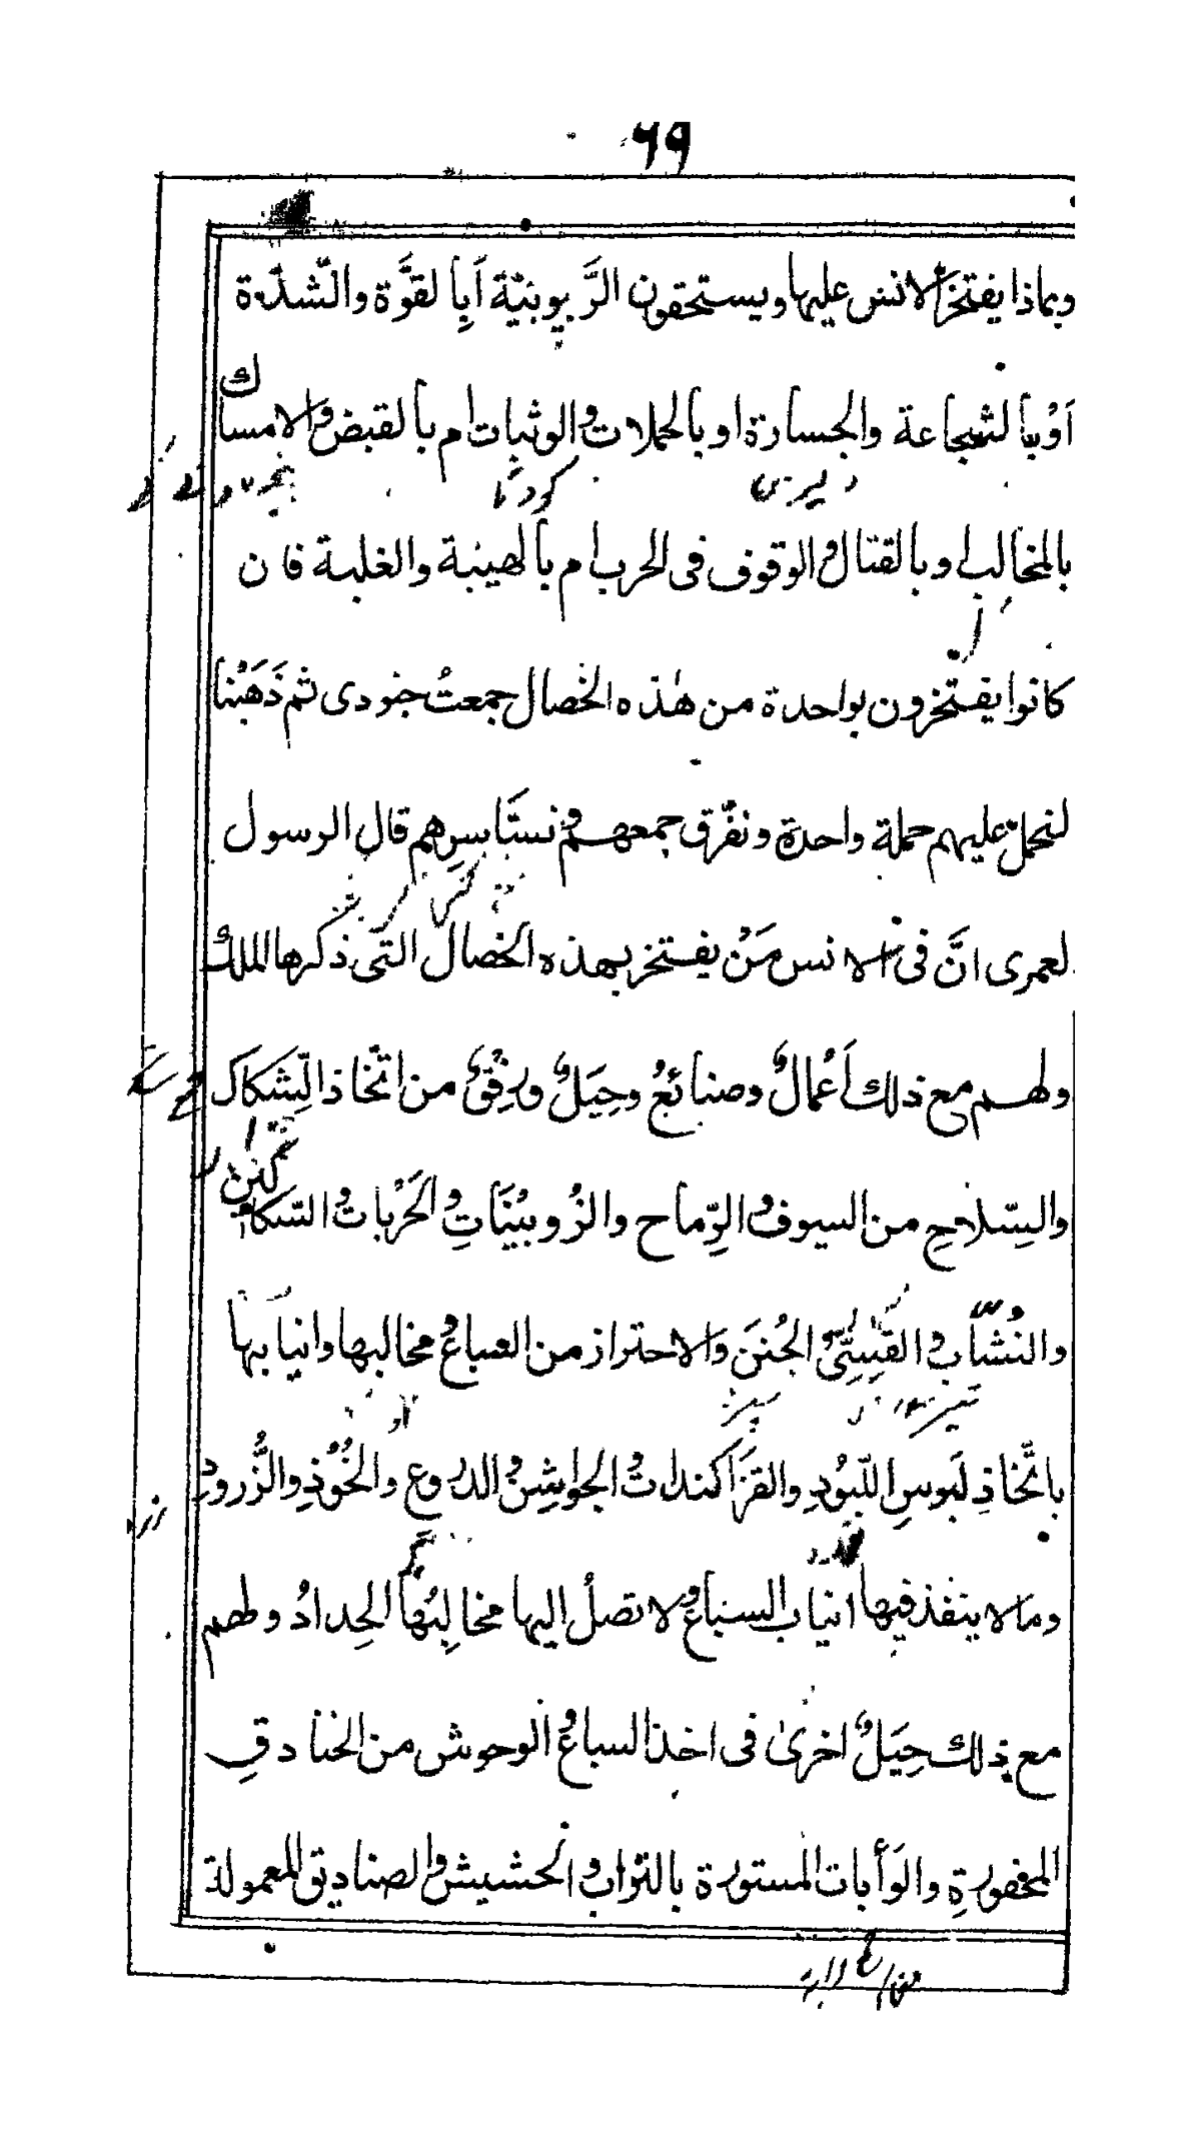 ۶۹
وبماذا يفتخر الانس عليها ويستحقون الرَّبوبنيّة اَبِا لقوَّة والشّدّة
اَوْبا لشجاعة والجسارة او بالحملات والوثبات ام بالقبض والامساك
دليرى
كودنا
بالمخالب او بالقتال والوقوف فى الحرب ام بالهيبة والغلبة فان
كانوا يفتخرون بواحدة من هٰذه الخصال جمعتُ جنودى ثم ذَهَبْنا
لنحمل عليهم حملة واحدة ونفرّق جمعهم ونستَّاسرهم قال الرسول
لعمرى انَّ فى الانس مَنْ يفتخر بهذه الخصال التى ذكرها الملك
ولهم مع ذلك اَعْمالٌ وصنائعُ وحِيَلٌ ورِفْقٌ من اتّخاذ الشِّكاك
والسِّلاحِ من السيوف والرِّماح والزُوبيْنَاتِ والحَرْبات والسّكا
كين
والنُشّاب والقِسِّىّ والجُنَن والاحتراز من السباع مخالبها وانيابها
تير
سپر
باتّخاذِ لَبوسِ اللّبُودِ والقزاكندات والجواشِن والدروع والخُوَذِ والزُّرودِ
زره
وما لا ينفذ فيها انياب السباع ولا تصلُ اليها مخالِبُها الحِدادُ ولهم
مع ذلك حِيَلٌ اخرىٰ فى اخذ السباع والوحوش من الخنادقِ
المحفورةِ والوَأبات المستورة بالتراب والحشيش والصناديق المعمولة